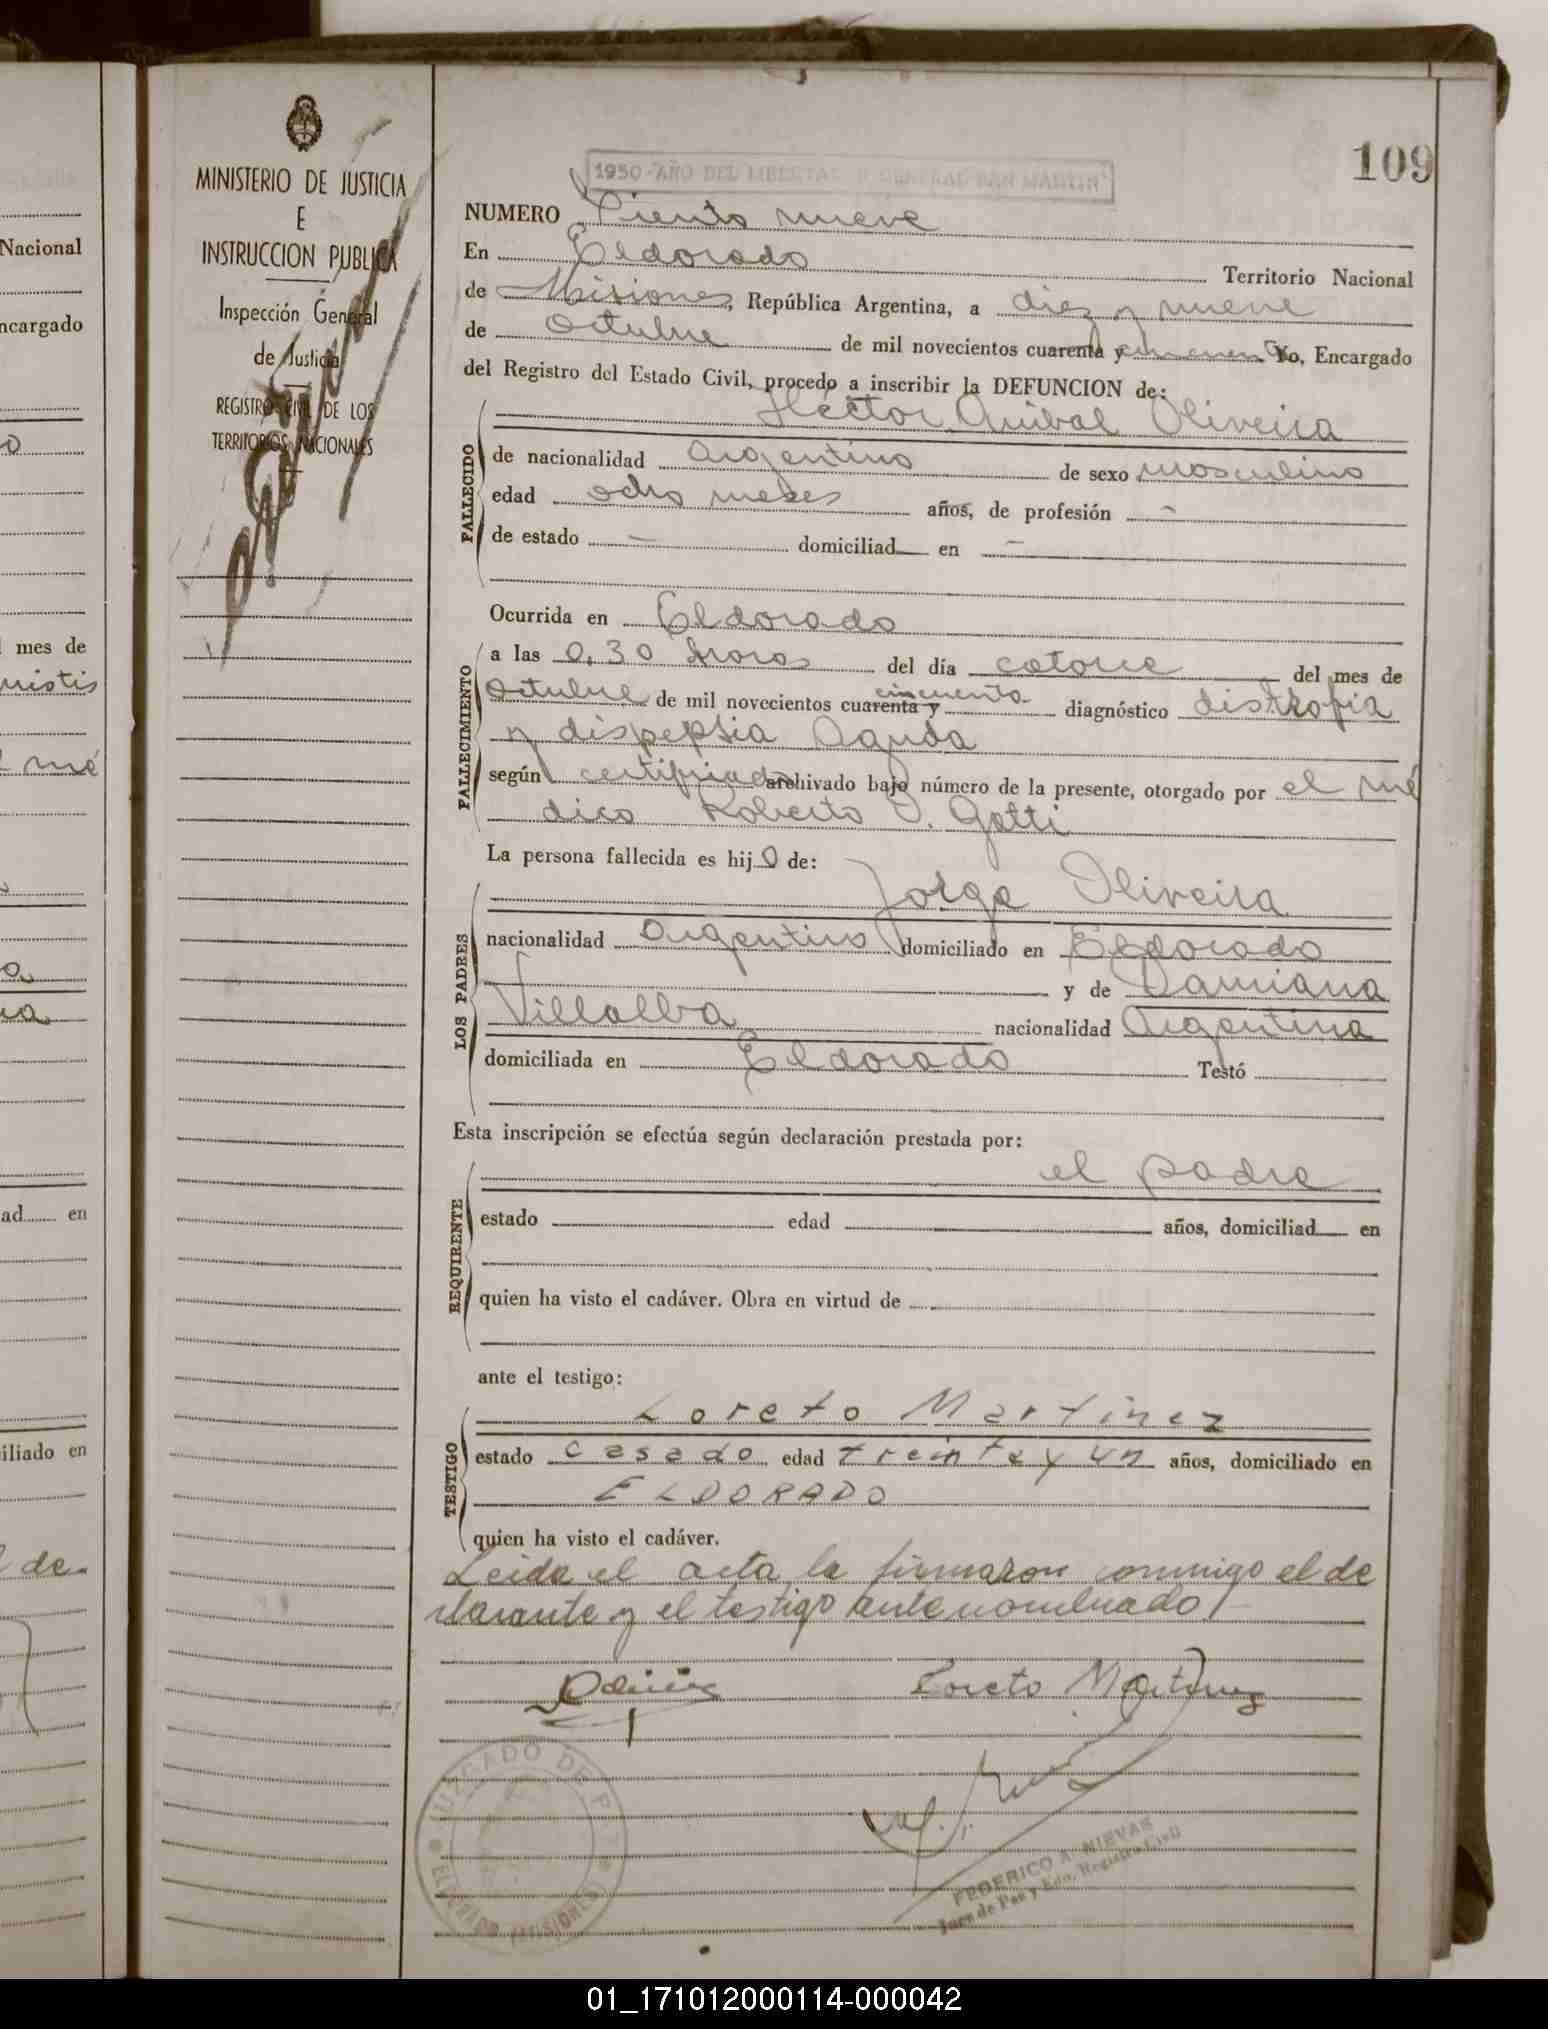 Nacional
ncargado
mes de
mé
ad en
iliado en
de
MINISTERIO DE JUSTICIA
E
INSTRUCCION PUBLICA
Inspección General
de Justicia
REGISTRO CIVIL DE LOS
TERRITORIOS NACIONALES
109
1950-AÑO DEL LIBERTADOR GENERAL SAN MARTIN
NUMERO Ciento nueve
En Eldorado Territorio Nacional
de Misiones, República Argentina, a diez y nueve
de Octubre de mil novecientos cuarenta y cincuenta Yo, Encargado
del Registro del Estado Civil, procedo a inscribir la DEFUNCION de:
Héctor Anibal Oliveira
FALLECIDO
de nacionalidad Argentino de sexo masculino
edad ocho meses años, de profesión -
de estado - domiciliad en -
Ocurrida en Eldorado
FALLECIMIENTO
a las 0,30 horas del día catorce del mes de
Octubre de mil novecientos cuarenta y cincuenta diagnóstico distrofia
y dispepsia Aguda
según certificado archivado bajo número de la presente, otorgado por el mé
dico Roberto O. Gatti
La persona fallecida es hijo de:
Jorge Oliveira
LOS PADRES
nacionalidad Argentino domiciliado en Eldorado
y de Damiana
Villalba nacionalidad Argentina
domiciliada en Eldorado Testó
Esta inscripción se efectúa según declaración prestada por:
el padre
REQUIRENTE
estado edad años, domiciliad en
quien ha visto el cadáver. Obra en virtud de
ante el testigo:
Loreto Martinez
TESTIGO
estado casado edad treinta y un años, domiciliado en
ELDORADO
quien ha visto el cadáver.
Leida el acta la firmaron conmigo el de
clarante y el testigo antenombrado
Loreto Martinez
JUZGADO DE PAZ
ELDORADO (MISIONES)
FEDERICO A. NIEVAS
Juez de Paz y Edo. Registro Civil
01_171012000114-000042